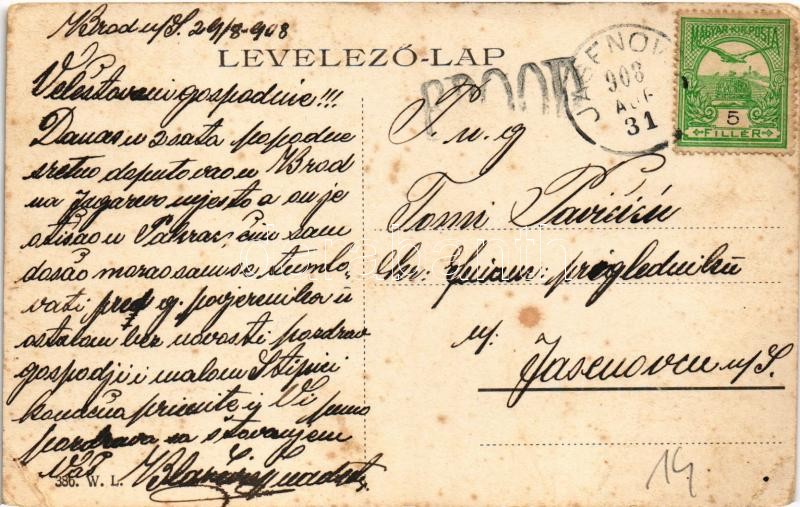 Brod n/S. 29/8-908
LEVELEZŐ-LAP
Veleštovani gospodine!!!
Danas u 2 sata popodne
sretno doputovao u Brod
na Jugarevo mjesto a on je
otišao u Pakrac, čim sam
došao morao sam se stumlo-
vati pred g. povjerenika u
ostalom bez novosti pozdrav
gospodji i malom Stipici
konačno primite i Vi puno
pozdrava sa štovanjem
Vaš
386. W. L.
JASENOV
908
AUG
31
MAGYAR KIR. POSTA
5
FILLÉR
P. n. g
Tomi Pavičiću
kr. financ: pregledniku
u:
Jasenovcu n/S.
14